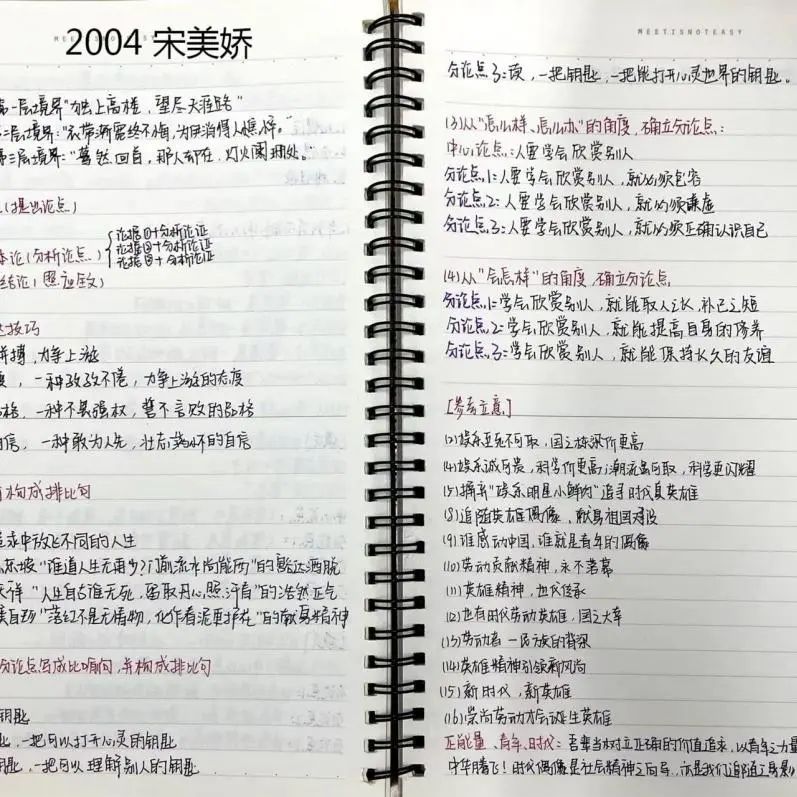 MEETISNOTEASY
2004 宋美娇
第一层境界"独上高楼，望尽天涯路"
二层境界："衣带渐宽终不悔，为伊消得人憔悴。"
第三层境界："蓦然回首，那人却在，灯火阑珊处。"
(提出论点)
本论(分析论点)
论据①+分析论证
论据②+分析论证
论据③+分析论证
结论(照应全文)
技巧
拼搏，力争上游
，一种孜孜不倦，力争上游的态度
格，一种不畏强权，誓不言败的品格
自信，一种敢为人先，壮志满怀的自信
构成排比句
追求中放飞不同的人生
东坡"谁道人生无再少？门前流水尚能西"的豁达洒脱
天祥"人生自古谁无死，留取丹心照汗青"的浩然正气
龚自珍"落红不是无情物，化作春泥更护花"的献身精神
分论点写成比喻句，并构成排比句
钥匙
匙，一把可以打开心灵的钥匙
钥匙，一把可以理解别人的钥匙
MEETISNOTEASY
分论点3：读，一把钥匙，一把能打开心灵世界的钥匙。
(3)从"怎么样、怎么办"的角度，确立分论点：
中心论点：人要学会欣赏别人
分论点1：人要学会欣赏别人，就必须包容
分论点2：人要学会欣赏别人，就必须谦虚
分论点3：人要学会欣赏别人，就必须正确认识自己
(4)从"会怎样"的角度，确立分论点
分论点1：学会欣赏别人，就能取人之长，补己之短
分论点2：学会欣赏别人，就能提高自身的修养
分论点3：学会欣赏别人，就能保持长久的友谊
[参考立意]
(2)娱乐至死不可取，国之栋梁价更高
(4)娱乐诚可贵，科学价更高；潮流虽可取，科学更闪耀
(5)摒弃"娱乐明星小鲜肉"追寻时代真英雄
(8)追随英雄偶像，献身祖国建设
(9)谁感动中国，谁就是青年的偶像
(10)劳动贡献精神，永不落幕
(11)英雄精神，世代传承
(12)也有时代劳动英雄，国之大幸
(13)劳动者—民族的脊梁
(14)英雄精神引领新风尚
(15)新时代，新英雄
(16)崇尚劳动才会诞生英雄
正能量、青年、时代：吾辈当树立正确的价值追求，以青年之力量
中华腾飞！时代偶像是社会精神之向导，亦是我们追随之身影